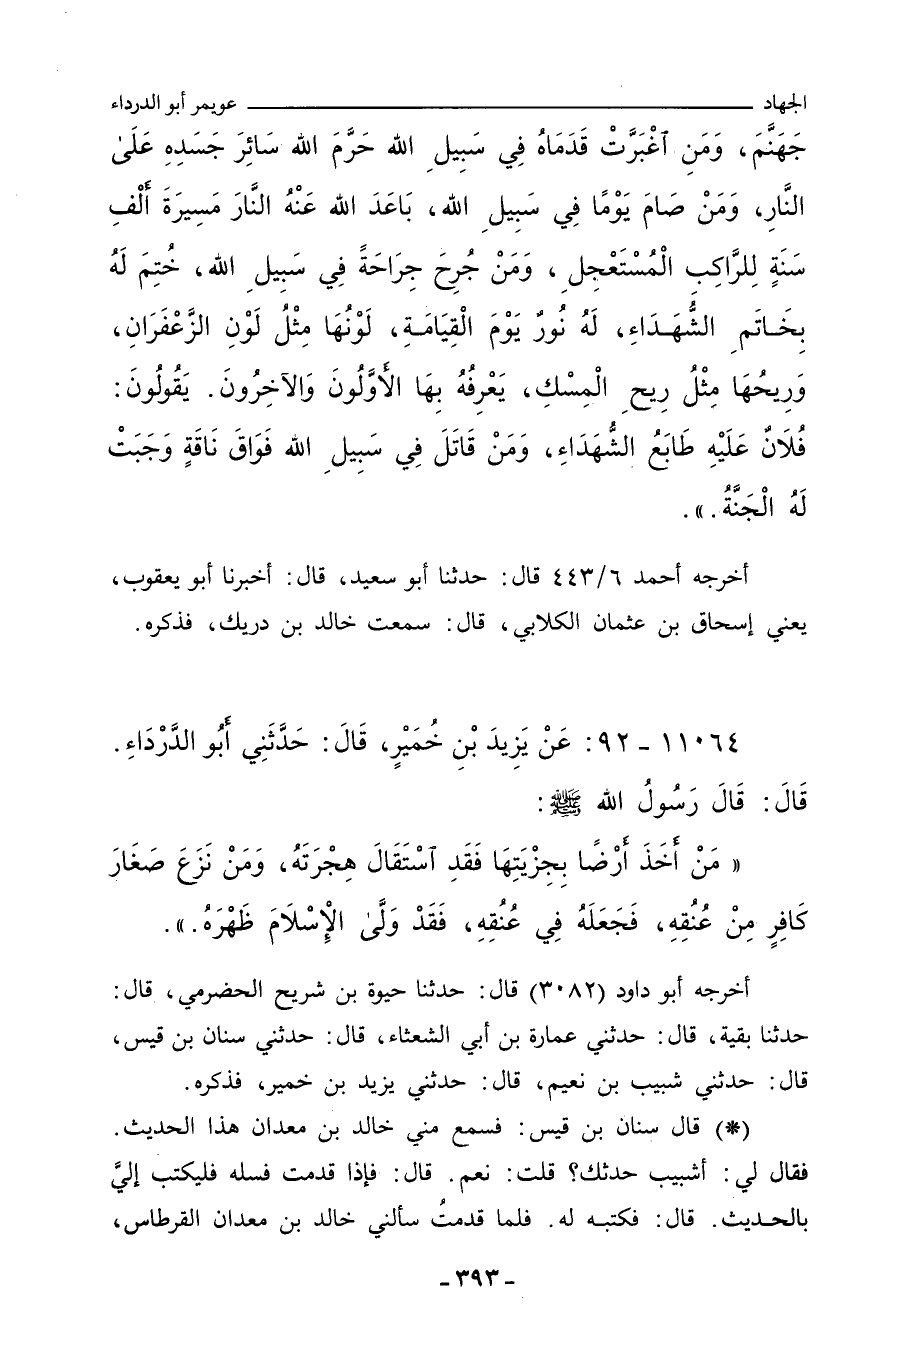 الجهاد ــــــــــــــــــــ عويمر أبو الدرداء
جَهَنَّمَ، وَمَنِ ٱغْبَرَّتْ قَدَمَاهُ فِي سَبِيلِ الله حَرَّمَ الله سَائِرَ جَسَدِهِ عَلَىٰ
النَّارِ، وَمَنْ صَامَ يَوْمًا فِي سَبِيلِ الله، بَاعَدَ الله عَنْهُ النَّارَ مَسِيرَةَ أَلْفِ
سَنَةٍ لِلرَّاكِبِ الْمُسْتَعْجِلِ، وَمَنْ جُرِحَ جِرَاحَةً فِي سَبِيلِ الله، خُتِمَ لَهُ
بِخَاتَمِ الشُّهَدَاءِ، لَهُ نُورٌ يَوْمَ الْقِيَامَةِ، لَوْنُهَا مِثْلُ لَوْنِ الزَّعْفَرَانِ،
وَرِيحُهَا مِثْلُ رِيحِ الْمِسْكِ، يَعْرِفُهُ بِهَا الأَوَّلُونَ وَالآخِرُونَ. يَقُولُونَ:
فُلَانٌ عَلَيْهِ طَابَعُ الشُّهَدَاءِ، وَمَنْ قَاتَلَ فِي سَبِيلِ الله فَوَاقَ نَاقَةٍ وَجَبَتْ
لَهُ الْجَنَّةُ.».
أخرجه أحمد ٤٤٣/٦ قال: حدثنا أبو سعيد، قال: أخبرنا أبو يعقوب،
يعني إسحاق بن عثمان الكلابي، قال: سمعت خالد بن دريك، فذكره.
١١٠٦٤ - ٩٢: عَنْ يَزِيدَ بْنِ خُمَيْرٍ، قَالَ: حَدَّثَنِي أَبُو الدَّرْدَاءِ.
قَالَ: قَالَ رَسُولُ الله ﷺ:
« مَنْ أَخَذَ أَرْضًا بِجِزْيَتِهَا فَقَدِ ٱسْتَقَالَ هِجْرَتَهُ، وَمَنْ نَزَعَ صَغَارَ
كَافِرٍ مِنْ عُنُقِهِ، فَجَعَلَهُ فِي عُنُقِهِ، فَقَدْ وَلَّىٰ الْإِسْلَامَ ظَهْرَهُ.».
أخرجه أبو داود (٣٠٨٢) قال: حدثنا حيوة بن شريح الحضرمي، قال:
حدثنا بقية، قال: حدثني عمارة بن أبي الشعثاء، قال: حدثني سنان بن قيس،
قال: حدثني شبيب بن نعيم، قال: حدثني يزيد بن خمير، فذكره.
(*) قال سنان بن قيس: فسمع مني خالد بن معدان هذا الحديث.
فقال لي: أشبيب حدثك؟ قلت: نعم. قال: فإذا قدمت فسله فليكتب إليَّ
بالحديث. قال: فكتبه له. فلما قدمتُ سألني خالد بن معدان القرطاس،
- ٣٩٣ -